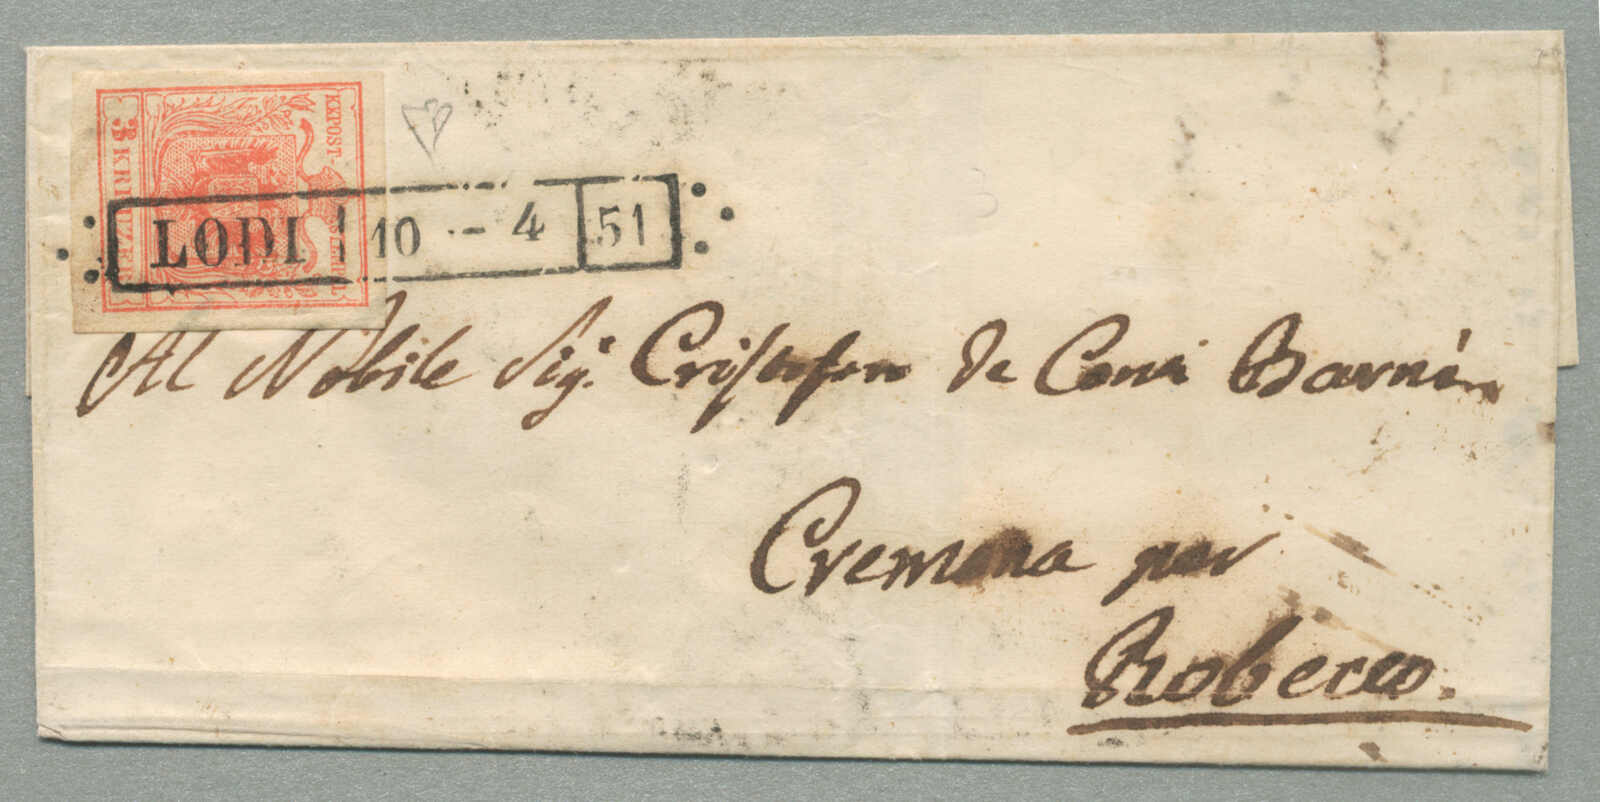 KKPOST-STEMPEL
3 KREUZER
LODI 10 - 4 51
Al Nobile Sig.r Cristoforo De Conti Barni
Cremona per
Robecco.